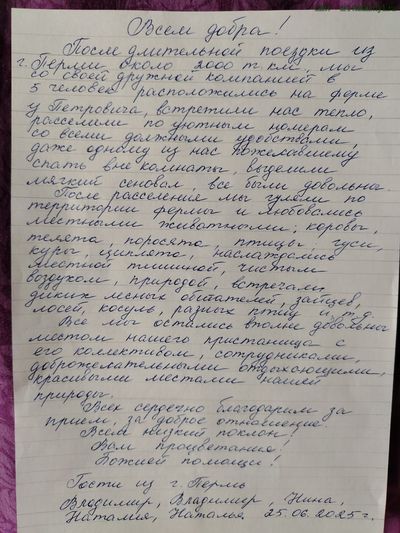 Всем добра!
После длительной поездки из
г. Перми около 2000 т. км, мы
со своей дружной компанией в
5 человек расположились на ферме
у Петровича, встретили нас тепло,
расселили по уютным номерам
со всеми должными удобствами,
даже одному из нас пожелавшему
спать вне комнаты, выделили
мягкий сеновал, все были довольны.
После расселения мы гуляли по
территории фермы и любовались
местными животными; коровы,
телята, поросята, птицы: гуси,
куры, циплята, наслаждались
местной тишиной, чистым
воздухом, природой, встречали
диких лесных обитателей, зайцев,
лосей, косуль, разных птиц и т.д.
Все мы остались вполне довольны
местом нашего пристанища с
его коллективом, сотрудниками,
доброжелательными отдыхающими,
красивыми местами нашей
природы.
Всех сердечно благодарим за
прием, за доброе отношение.
Всем низкий поклон!
Вам процветания!
Божией помощи!
Гости из г. Пермь
Владимир, Владимир, Нина,
Наталия, Наталья. 25.06.2025 г.